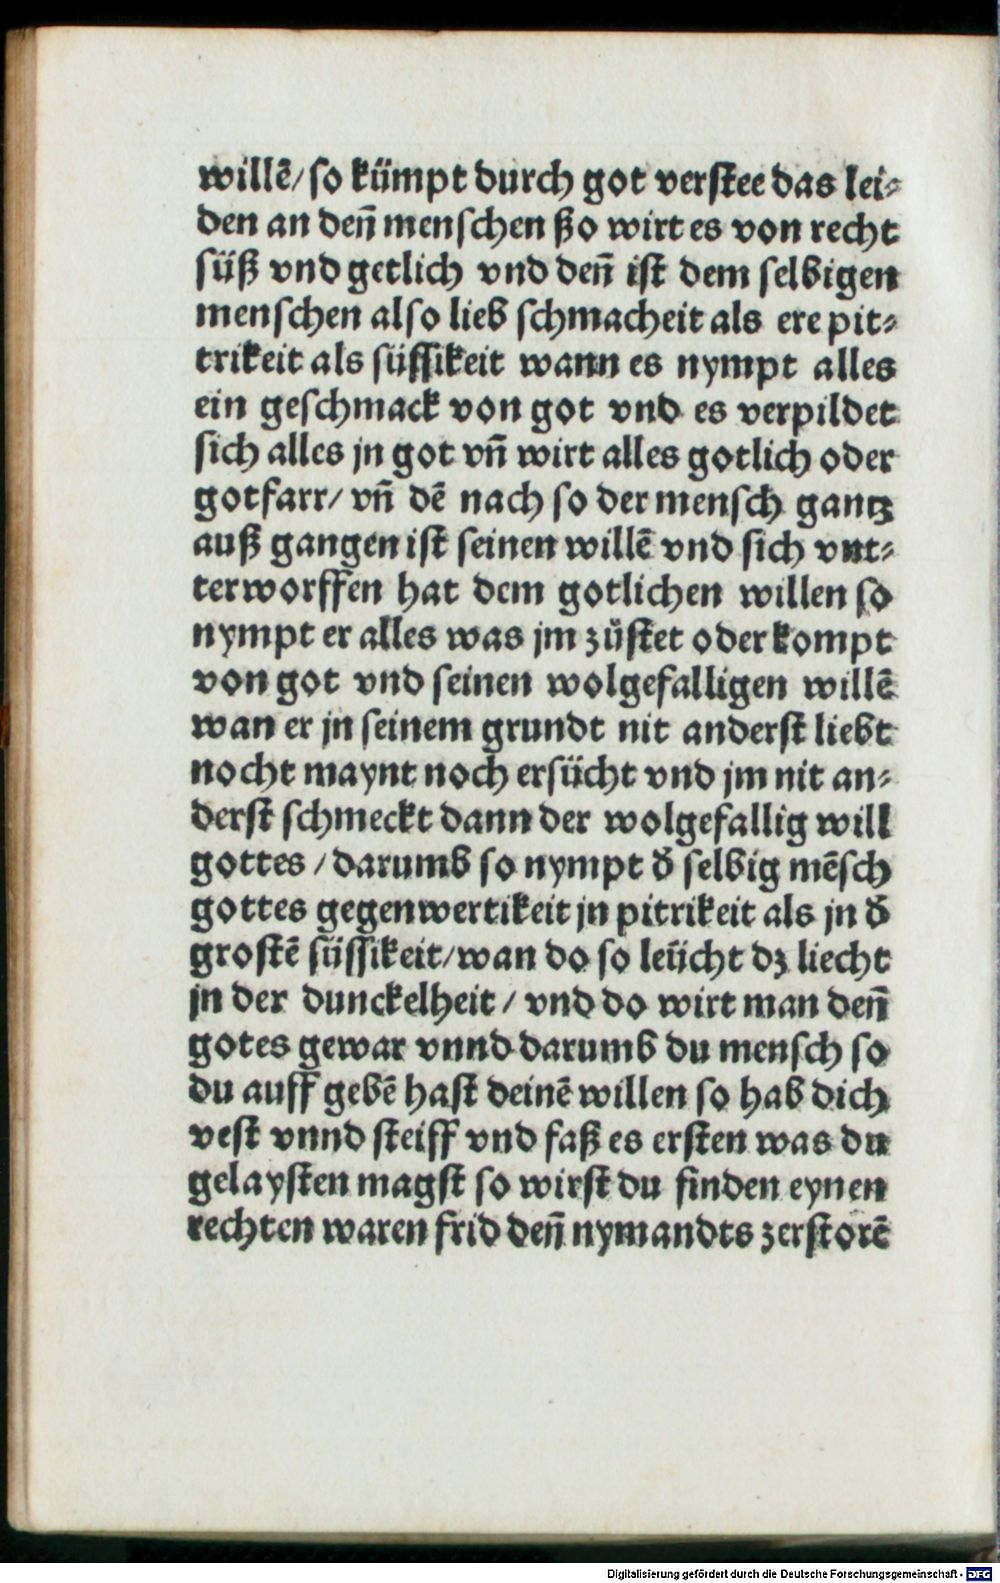 willē/ so kümpt durch got verstee das lei⸗
den an den̄ menschen ßo wirt es von recht
süß vnd getlich vnd den̄ ist dem selbigen
menschen also lieb schmacheit als ere pit⸗
trikeit als süssikeit wann es nympt alles
ein geschmack von got vnd es verpildet
sich alles jn got vn̄ wirt alles gotlich oder
gotfarr/ vn̄ dē nach so der mensch gantz
auß gangen ist seinen willē vnd sich vnt⸗
terworffen hat dem gotlichen willen so
nympt er alles was jm züstet oder kompt
von got vnd seinen wolgefalligen willē
wan er jn seinem grundt nit anderst liebt
nocht maynt noch ersücht vnd jm nit an⸗
derst schmeckt dann der wolgefallig will
gottes / darumb so nympt d̛ selbig mēsch
gottes gegenwertikeit jn pitrikeit als jn d̛
grostē süssikeit/ wan do so leücht dz liecht
jn der dunckelheit / vnd do wirt man den̄
gotes gewar vnnd darumb du mensch so
du auff gebē hast deinē willen so hab dich
vest vnnd steiff vnd faß es ersten was du
gelaysten magst so wirst du finden eynen
rechten waren frid den̄ nymandts zerstorē
Digitalisierung gefördert durch die Deutsche Forschungsgemeinschaft - DFG